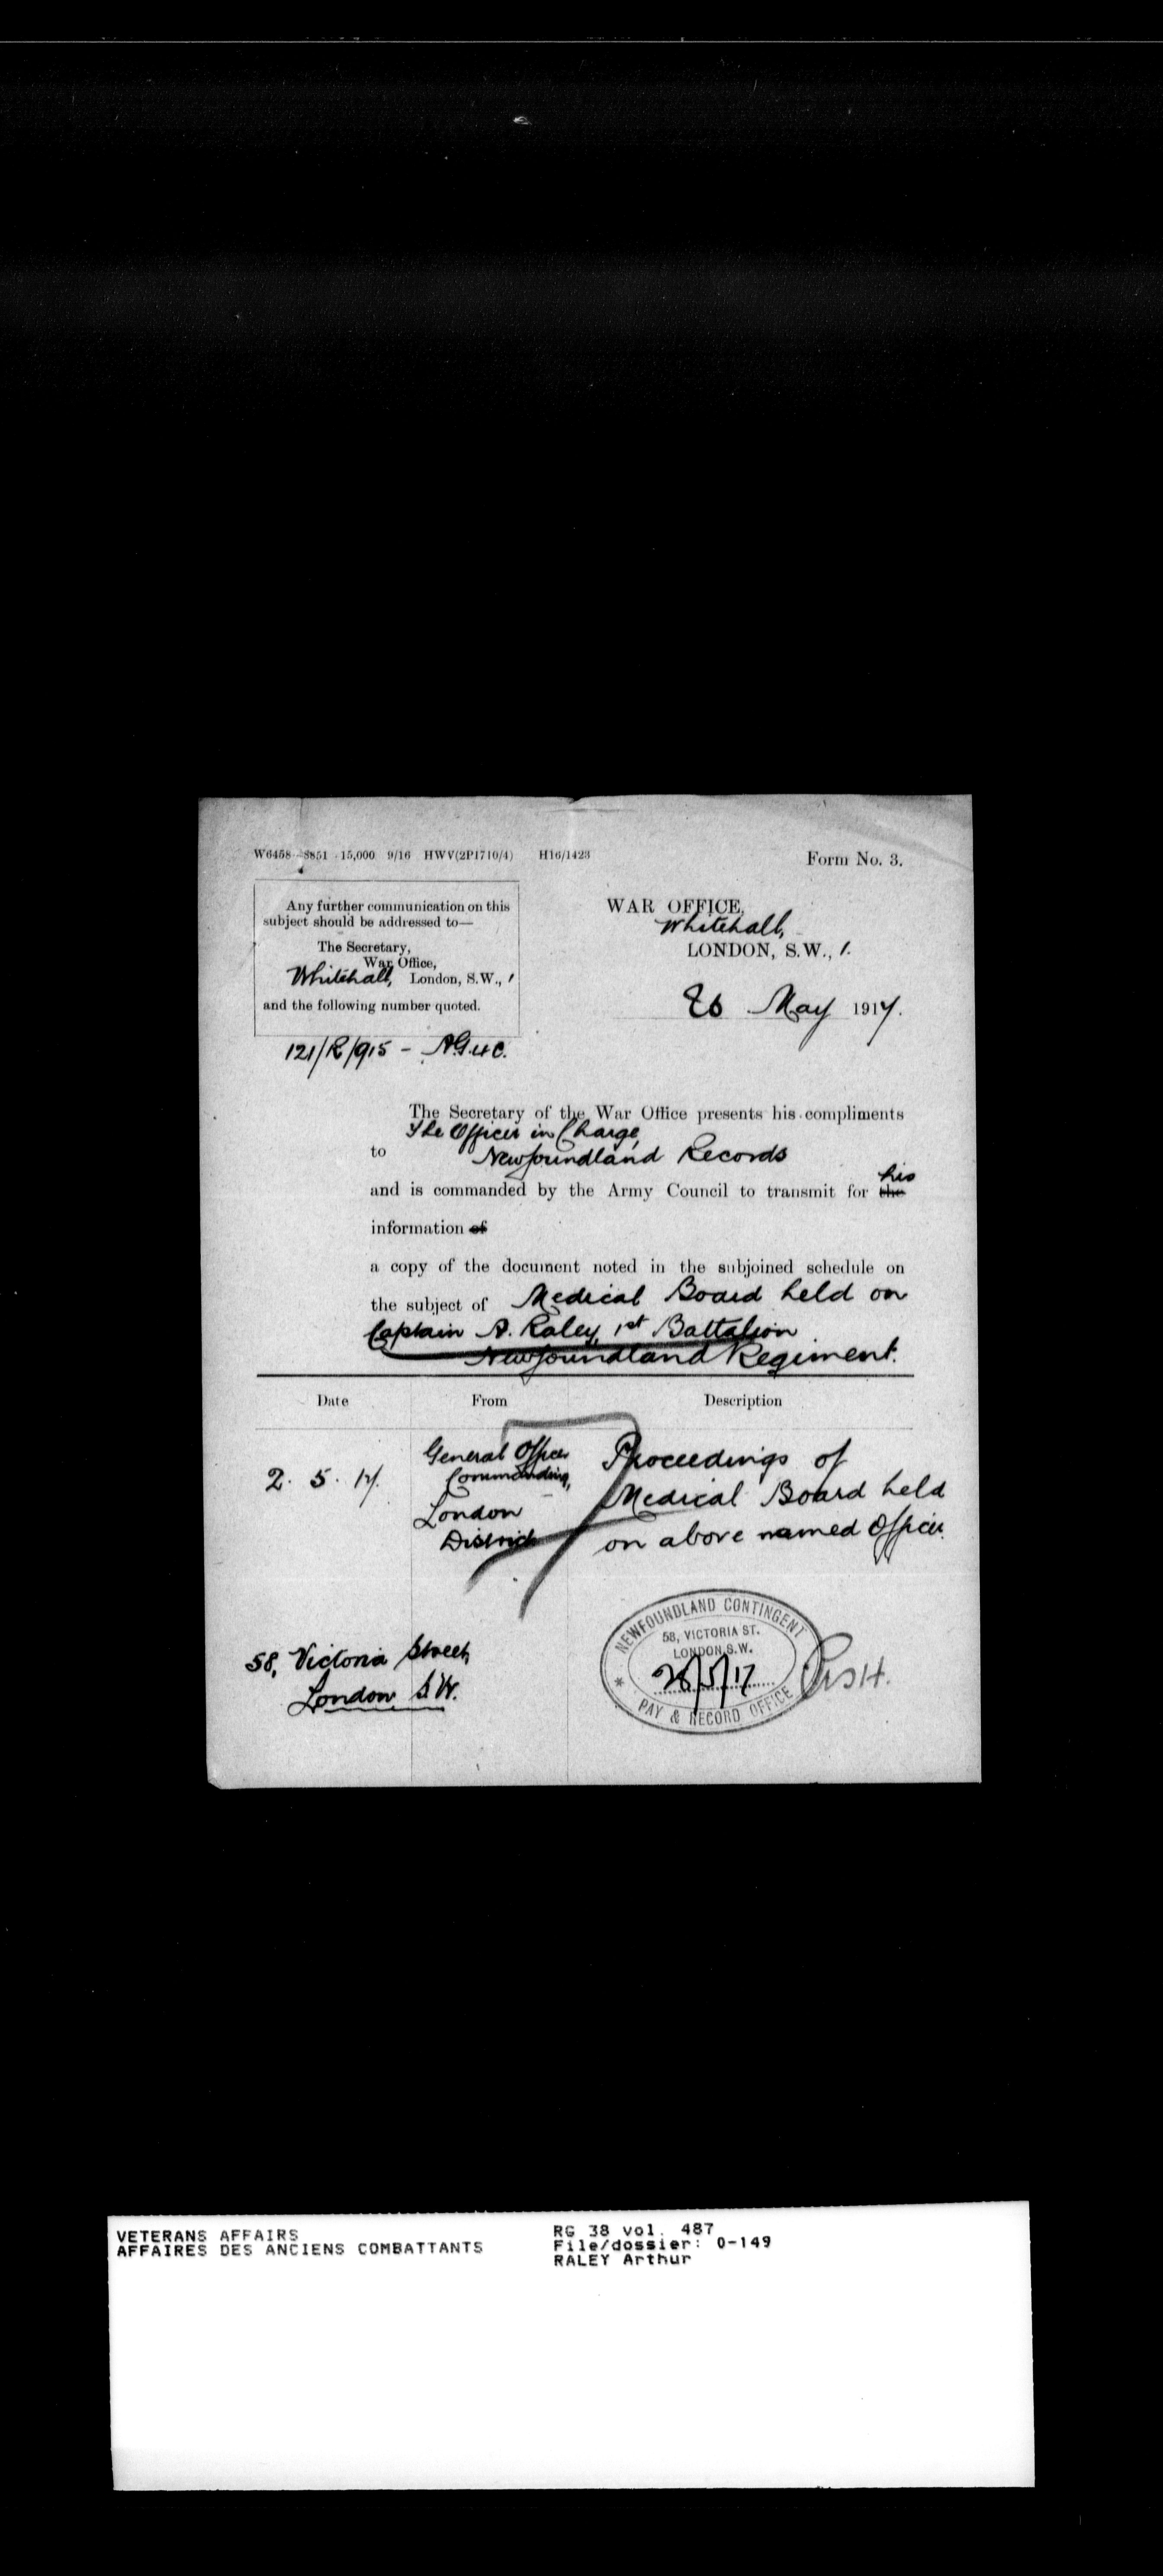 W6458—8851 15,000 9/16 HWV(2P1710/4) H16/1423
Form No. 3.
Any further communication on this
subject should be addressed to—
The Secretary,
War Office,
Whitehall, London, S.W., 1
and the following number quoted.
121/R/915 -
WAR OFFICE,
Whitehall,
LONDON, S.W., 1.
26 May 1917.
The Secretary of the War Office presents his compliments
The Officer in Charge,
to Newfoundland Records
his
and is commanded by the Army Council to transmit for the
information of
a copy of the document noted in the subjoined schedule on
the subject of Medical Board held on
Captain A. Raley, 1st Battalion
Newfoundland Regiment.
Date From Description
2. 5. 17.
General Officer
Commanding,
London
District
Proceedings of
Medical Board held
on above named Officer.
58, Victoria Street,
London S.W.
NEWFOUNDLAND CONTINGENT
58, VICTORIA ST.
LONDON, S.W.
28/5/17
* PAY & RECORD OFFICE
VETERANS AFFAIRS
AFFAIRES DES ANCIENS COMBATTANTS
RG 38 vol. 487
File/dossier: 0-149
RALEY Arthur